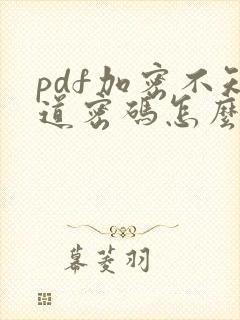 pdf加密不知
道密碼怎麼
幕菱羽